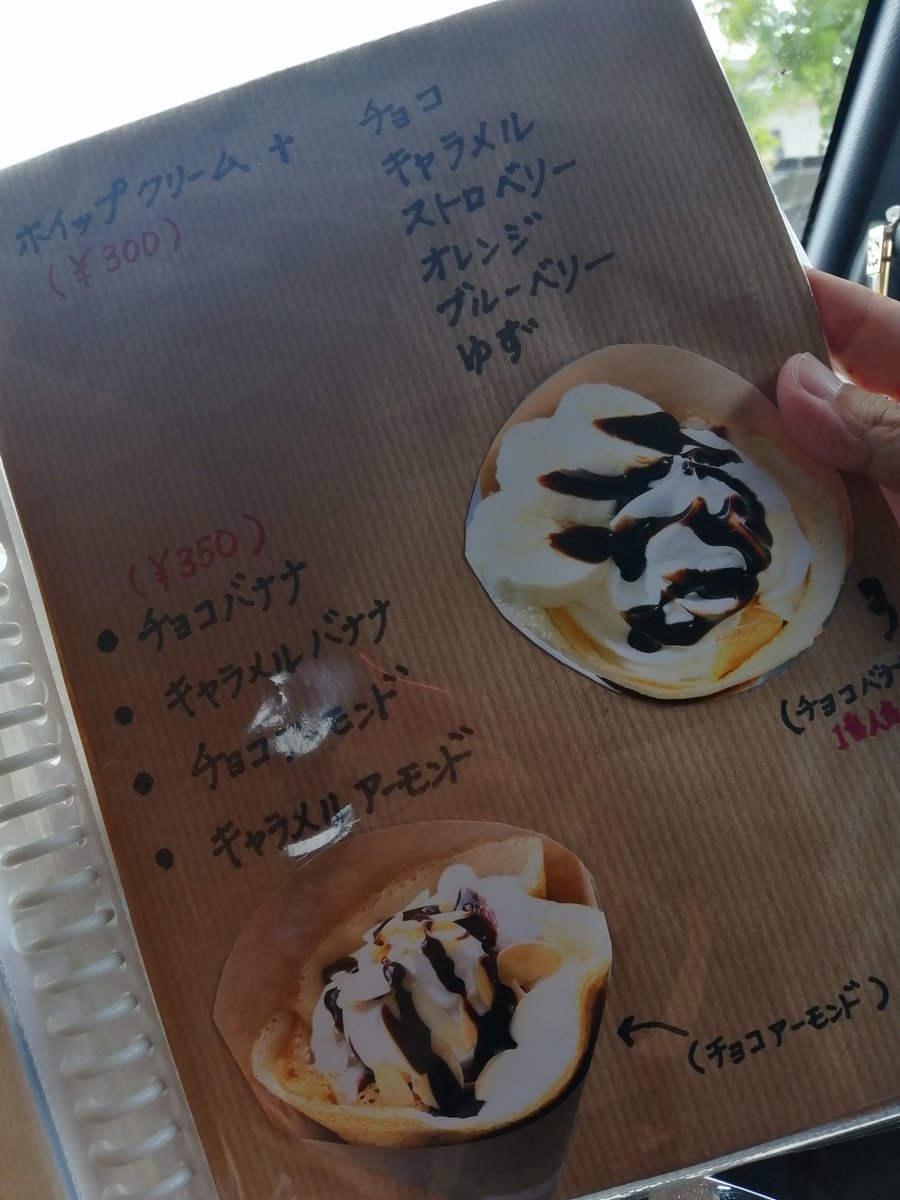 ホイップクリーム +
(¥300)
チョコ
キャラメル
ストロベリー
オレンジ
ブルーベリー
ゆず
(¥350)
● チョコバナナ
● キャラメルバナナ
● チョコアーモンド
● キャラメルアーモンド
(チョコバナ
1番人気
(チョコアーモンド)